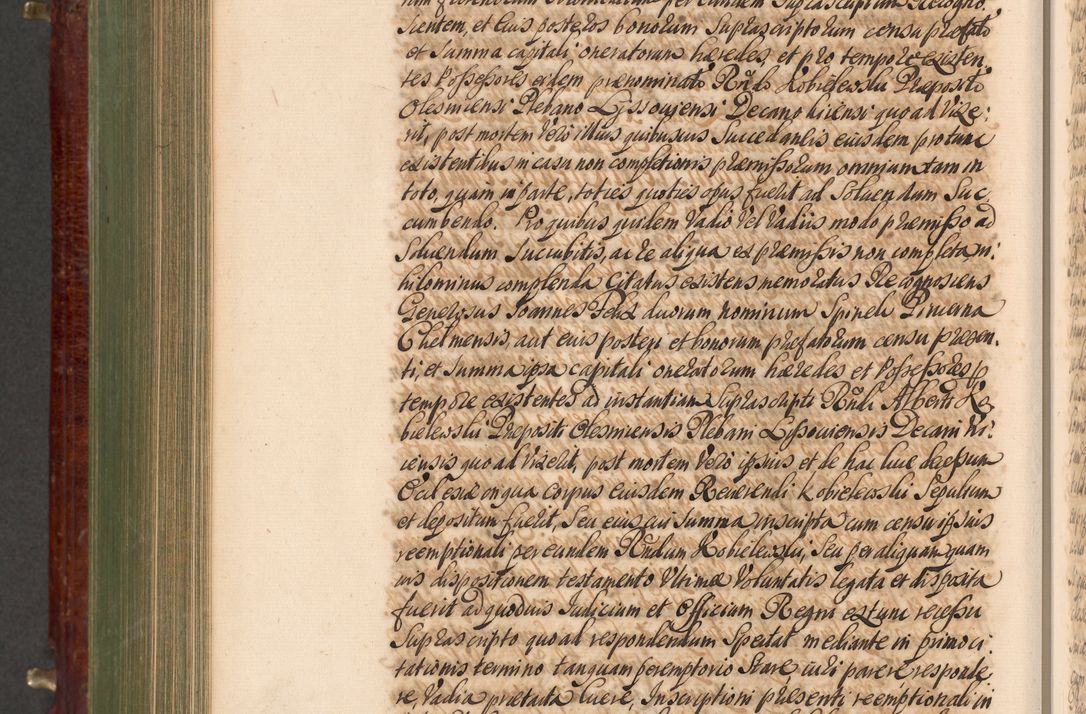 scientem, et eius posteros bonorum suprascriptorum censu præfato
et summa capitali oneratorum hæredes, et pro tempore existen
tes Possessores eidem prænominato Rndo Kobielewski Præposito
Olesniensi Plebano Lyssoviensi Decano hiensi quoad vixe:
rit, post mortem vero illius quibusvis succedaneis eiusdem pro tunc
existentibus in casu non completionis præmissorum omnium tam in
toto, quam in parte, toties quoties opus fuerit ad solvendum suc
cumbendo. Pro quibus quidem vadio vel vadiis modo præmisso ad
solvendum succubitis, ac re aliqua ex præmissis non completa ni:
hilominus complenda citatus existens memoratus Recognoscens
Generosus Joannes Felix duorum nominum Spinek Pincerna
Chelmensis, aut eius posteri et bonorum præfatorum censu præsen:
ti, et summa ipsa capitali oneratorum hæredes et Possessores p
tempore existentes ad instantiam suprascripti Rndi Alberti Ko
bielewski Præpositi Olesniensis Plebani Lyssoviensis Decani hi:
ensis quoad vixerit, post mortem vero ipsius et de hac luce decessum
Ecclesiæ in qua corpus eiusdem Reverendi Kobielewski sepultum
et depositum fuerit, seu eius cui summa inscripta cum censu ipsius
reemptionali per eundem Rndum Kobielewski, seu per aliquam quam
vis dispositionem testamento ultimæ voluntatis legata et disposita
fuerit ad quodvis Judicium et Officium Regni ex tunc recessu
suprascripto quoad respondendum spectat mediante in primo ci:
tationis termino tanquam peremptorio stare, iuri parere responde
re, vadia prætacta luere, Inscriptioni præsenti reemptionali in